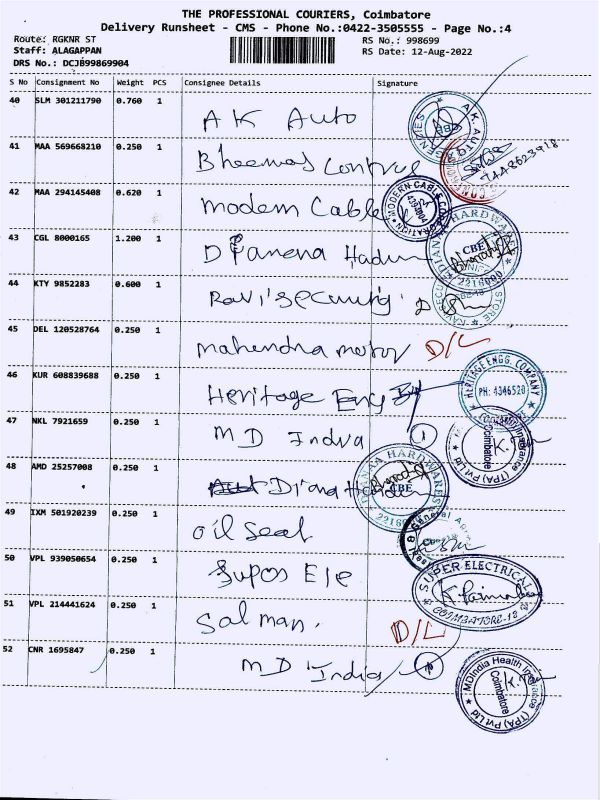 THE PROFESSIONAL COURIERS, Coimbatore
Delivery Runsheet - CMS - Phone No.:0422-3505555 - Page No.:4
Route: RGKNR ST
Staff: ALAGAPPAN
DRS No.: DCJB99869904
RS No.: 998699
RS Date: 12-Aug-2022
S No Consignment No Weight PCS Consignee Details Signature
40 SLM 301211790 0.760 1 AK Auto
41 MAA 569668210 0.250 1 Bheemas
42 MAA 294145408 0.620 1 Modern Cable
MODERN CABLE CORPORATION
4394904
43 CGL 8000165 1.200 1
DIANAA HARDWARES
CBE
2216080
44 KTY 9852283 0.600 1 Ravi security
STORE
45 DEL 120528764 0.250 1 mahendra motor D/L
46 KUR 608839688 0.250 1 Heritage Eng
HERITAGE ENGG. COMPANY
PH: 4346520
47 NKL 7921659 0.250 1 MD India 1
(TPA) Pvt Ltd
Coimbatore
48 AMD 25257008 0.250 1 Diana
DIANAA HARDWARES
CBE
49 IXM 501920239 0.250 1 oil seal
50 VPL 939050654 0.250 1 Supos Ele
SUPER ELECTRICAL
COIMBATORE-18
51 VPL 214441624 0.250 1 Salman. D/L
52 CNR 1695847 0.250 1 MD India
MDIndia Health Insurance (TPA) Pvt Ltd
Coimbatore